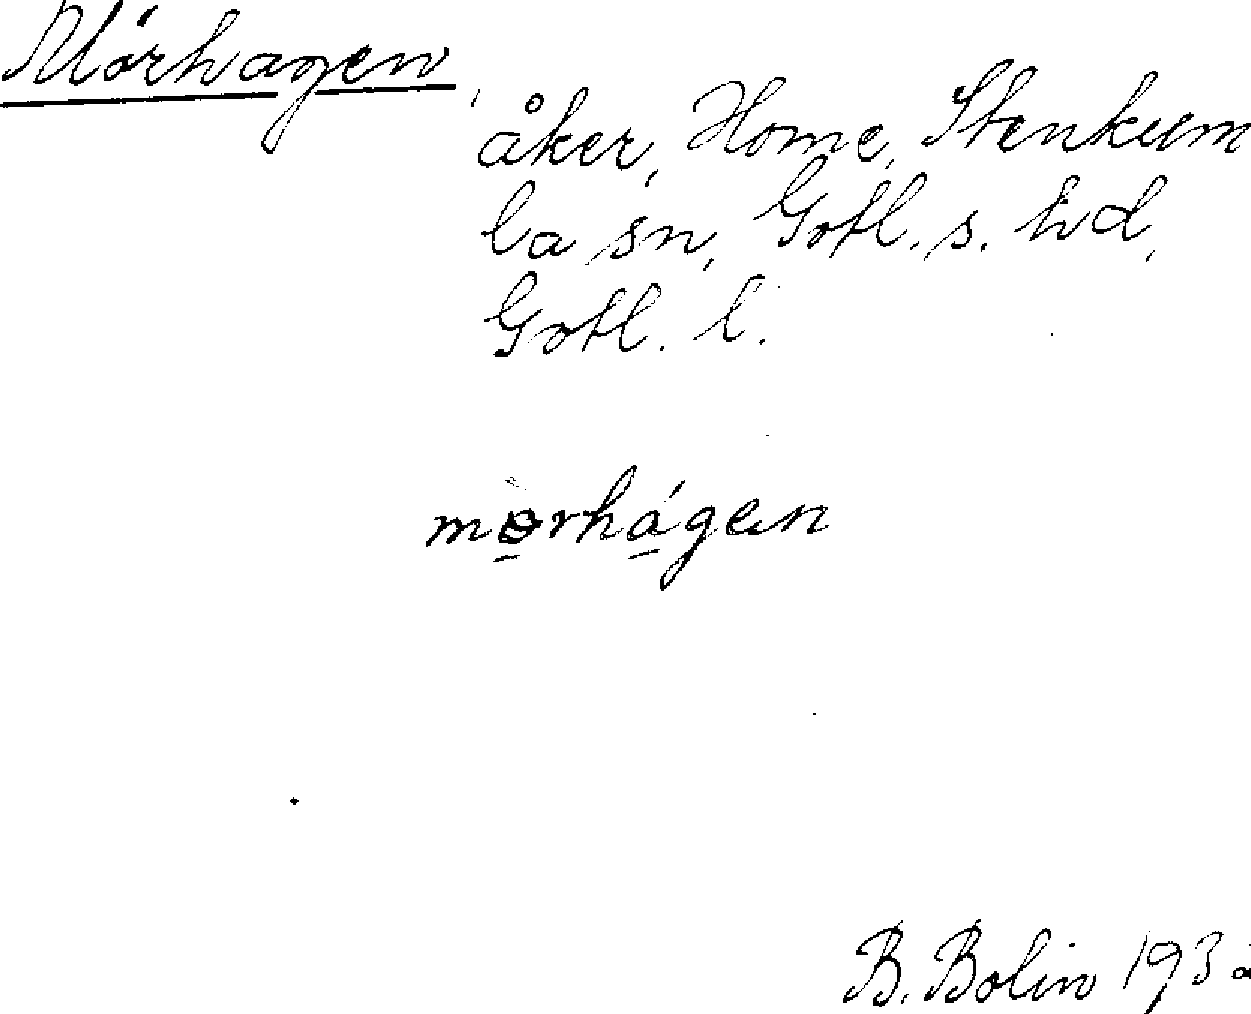 Mörhagen,
åker, Home, Stenkum
la sn, Gotl. s. hd,
Gotl. l.
mørhágen
B. Bolin 193